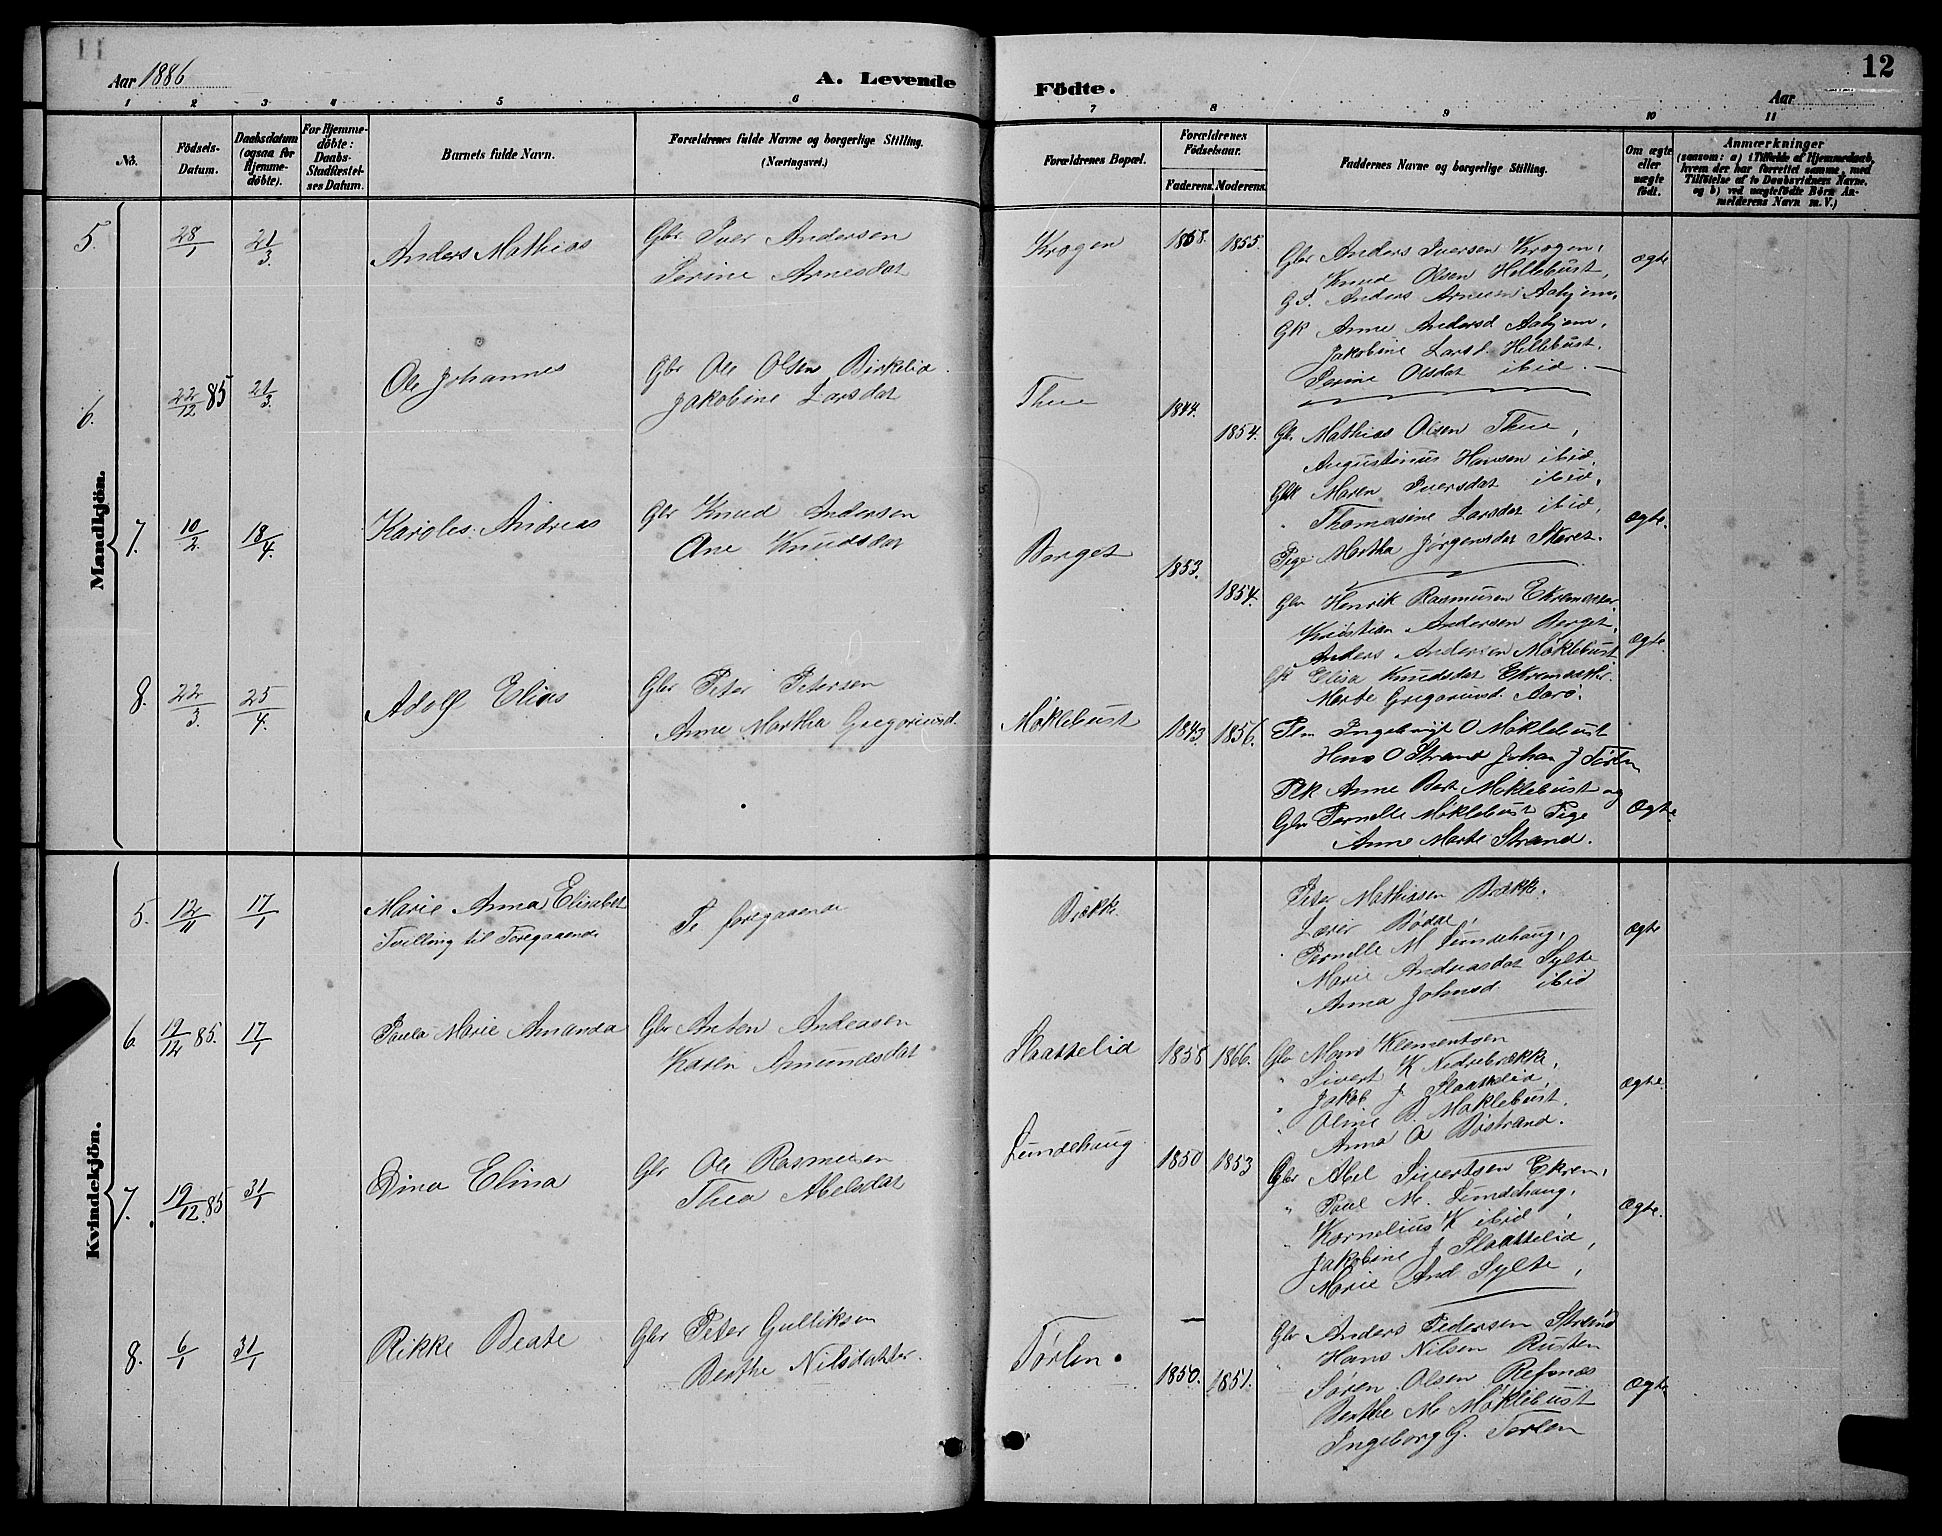 11
Aar 1886
A. Levende
1 2 3 4 5 6
No.
Fødsels-
Datum.
Daabsdatum
(ogsaa for
Hjemme-
døbte).
For Hjemme-
døbte:
Daabs-
Stadfæstel-
ses Datum.
Barnets fulde Navn.
Forældrenes fulde Navne og borgerlige Stilling.
(Næringsvei.)
Mandkjön.
5. 28/1 21/3 Anders Mathias Gbr Iver Andersen
Serine Arnesdat
6. 22/12 85 21/3 Ole Johannes Gbr Ole Olsen Birkelid
Jakobine Larsdat
7. 10/2 18/4 Karoles Andreas Gbr Knud Andersen
Ane Knudsdat
8. 22/3 25/4 Adolf Elias Gbr Peter Petersen
Anne Martha Gregoriusd.
Kvindekjön.
5. 12/11 17/1 Marie Anna Elisabet
Tvilling til Foregaaende
foregaaende
6. 12/12 85. 17/1 Paula Marie Amanda Gbr Anton Andersen
Karen Amundsdat
7. 19/12 85 31/1 Dina Elina Gbr Ole Rasmusen
Thea Abelsdat
8. 6/1 31/1 Rikke Beate Gbr Peter Gulliksen
Berthe Nilsdatter.
Födte.
12
Aar
7 8 9 10 11
Forældrenes Bopæl.
Forældrenes
Fødselsaar.
Faderens. Moderens.
Faddernes Navne og borgerlige Stilling.
Om ægte
eller
uægte
født.
Anmærkninger
(saasom: a) i Tilfælde af Hjemmedaab,
hvem der har forrettet samme, med
Tilføielse af to Daabsvidners Navne,
og b) ved uægtefødte Børn An-
melderens Navn m. V.)
Krogen 1858. 1855. Gbr Anders Iversen Krogen, ægte
Knud Olsen Hellebust,
G.S. Anders Arnesen Aahjem,
GK Anne Andersd Aahjem,
Jakobine Larsd. Hellebust,
Serine Olsdat ibid.
Thue 1844. 1854. Gbr Mathias Olsen Thue,
Augustinus Hansen ibid,
GbK Maren Iversdat ibid,
" Thomasine Larsdat ibid, ægte.
Pige Martha Jørgensdat Staret.
Berget 1853. 1854. Gbr Henrik Rasmusen
Kristian Andersen Berget,
Anders Andersen Møklebust ægte.
GK Elisa Knudsdat
Marte Gregoriusd. Aarø.
Møklebust 1843. 1856. Ingebrigt O Møklebust
Hans O Strand Johan J Tørlen
Anne Bert Møklebust og
Gbr Pernelle Møklebust Pige Ægte.
Anne Marte Strand.
Brække Peter Mathissen Brække.
Lærer Bødal, ægte
Pernelle M Lundehaug,
Marie Andreasdat Sylte
Anna Johnsd. ibid
Slaattelid 1858 1866. Gbr Mons Klementsen
" Sivert K Nedrebrække,
" Jakob J Slaattelid, ægte.
" Oline B. Møklebust.
Anna A Bøstrand.
Lundehaug 1850 1853 Gbr Abel Sivertsen Ekrem,
" Paul M. Lundehaug,
" Kornelius K ibid, ægte.
Jakobine J Slaattelid,
Marie And Sylte,
Tørlen. 1850. 1851. Gbr Anders Pedersen Strand
" Hans Nilsen Rusten
Søren Olsen Refsnæs
Berthe M Møklebust ægte
Ingeborg G. Tørlen